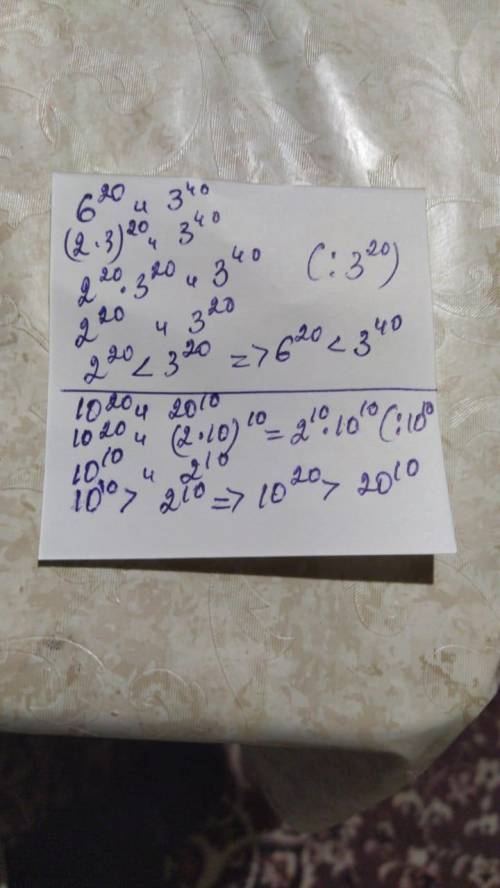 6²⁰ и 3⁴⁰
(2·3)²⁰ и 3⁴⁰
2²⁰·3²⁰ и 3⁴⁰ (:3²⁰)
2²⁰ и 3²⁰
2²⁰ < 3²⁰ => 6²⁰ < 3⁴⁰
10²⁰ и 20¹⁰
10²⁰ и (2·10)¹⁰ = 2¹⁰·10¹⁰ (:10¹⁰
10¹⁰ и 2¹⁰
10¹⁰ > 2¹⁰ => 10²⁰ > 20¹⁰